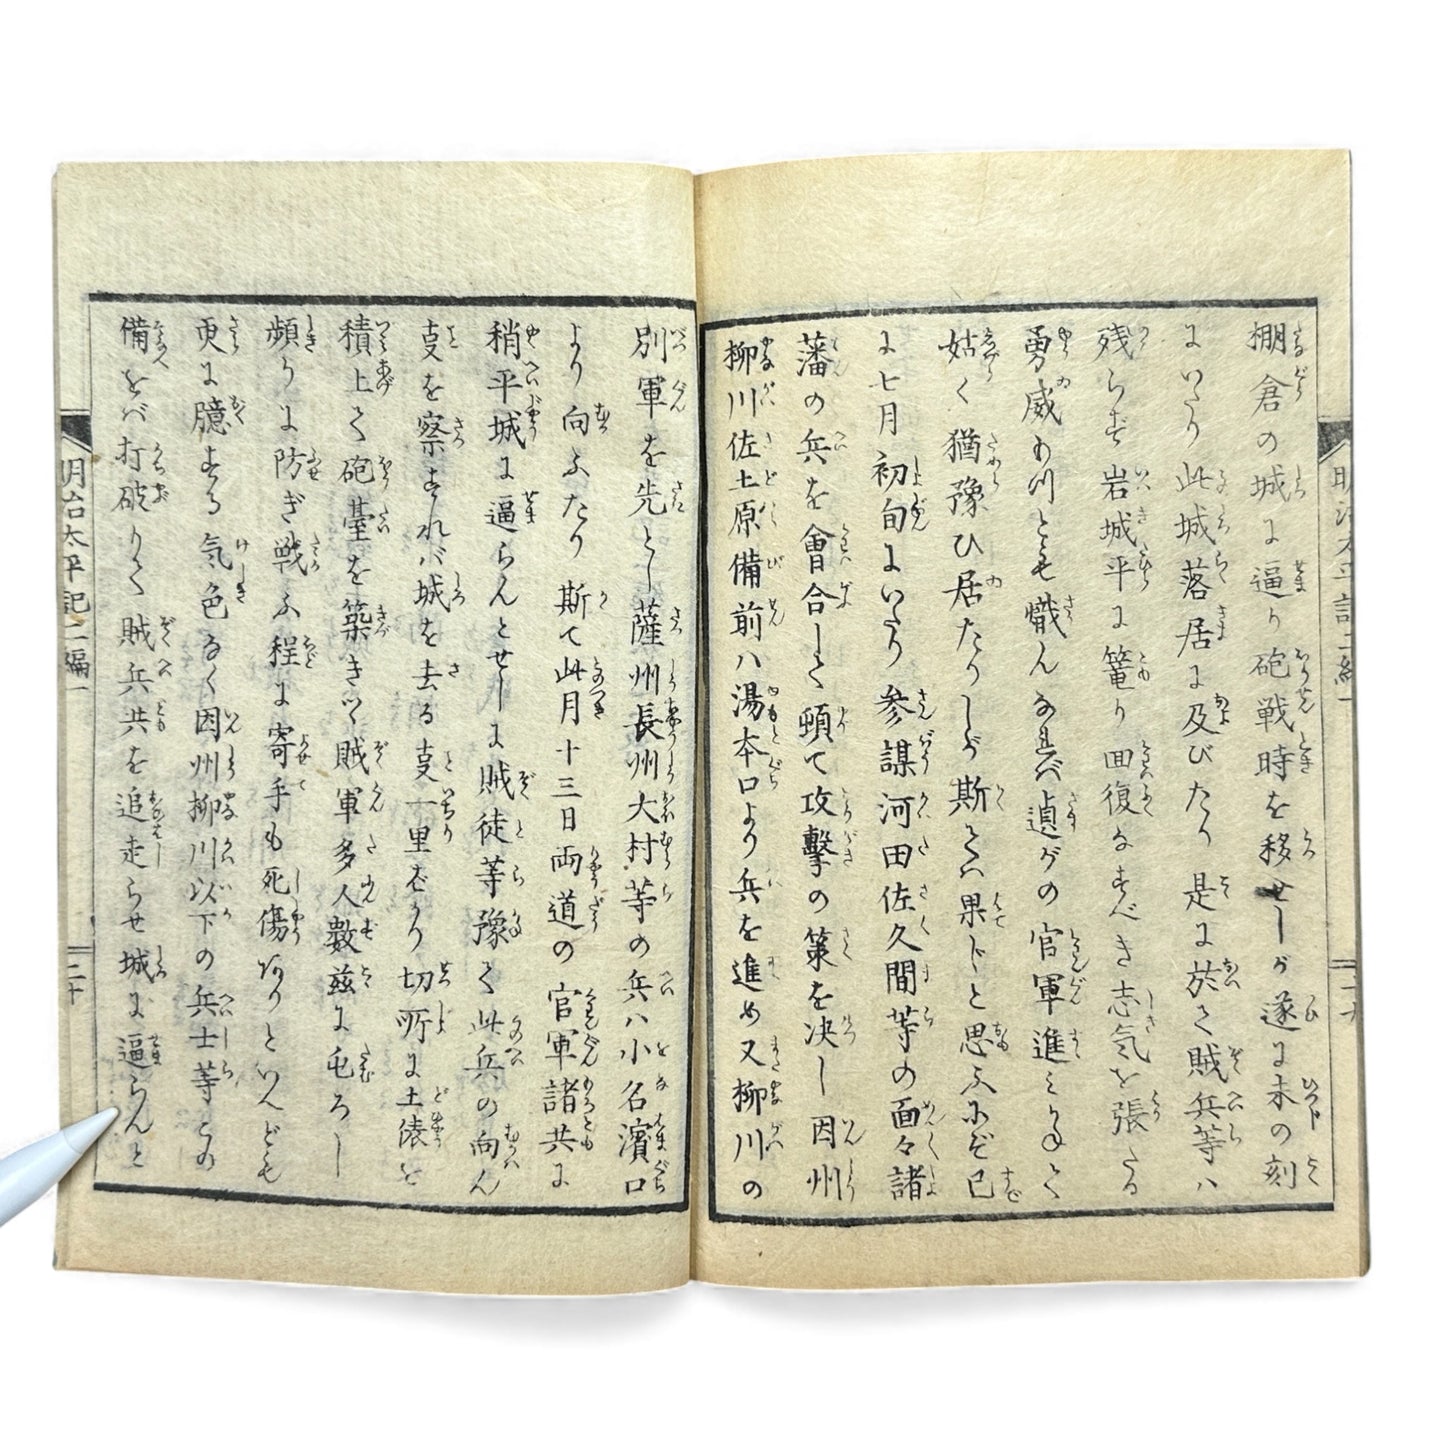 棚倉の城に逼り砲戦時を移せしが遂に未の刻
にいたり此城落居に及びたり是に於て賊兵等ハ
残らず岩城平に篭り回復なすべき志気を張たる
勇威ありとも熾んなれバ進がの官軍進みかねて
姑く猶豫ひ居たりしが斯てハ果じと思ふにぞ已
に七月初旬にいたり参謀河田佐久間等の面々諸
藩の兵を會合して頓て攻撃の策を决し因州
柳川佐土原備前ハ湯本口より兵を進め又柳川の
別軍を先とし薩州長州大村等の兵ハ小名濱口
より向ふたり斯て此月十三日両道の官軍諸共に
稍平城に逼らんとせしに賊徒等豫て此兵の向ん
支を察すれバ城を去る支一里ばかり切所に土俵を
積上て砲臺を築きつゝ賊軍多人數茲に屯ろし
頻りに防ぎ戦ふ程に寄手も死傷ありといへども
更に臆する気色なく因州柳川以下の兵士等この
備をバ打破りて賊兵共を追走らせ城に逼らんと
明治太平記二編一
二十